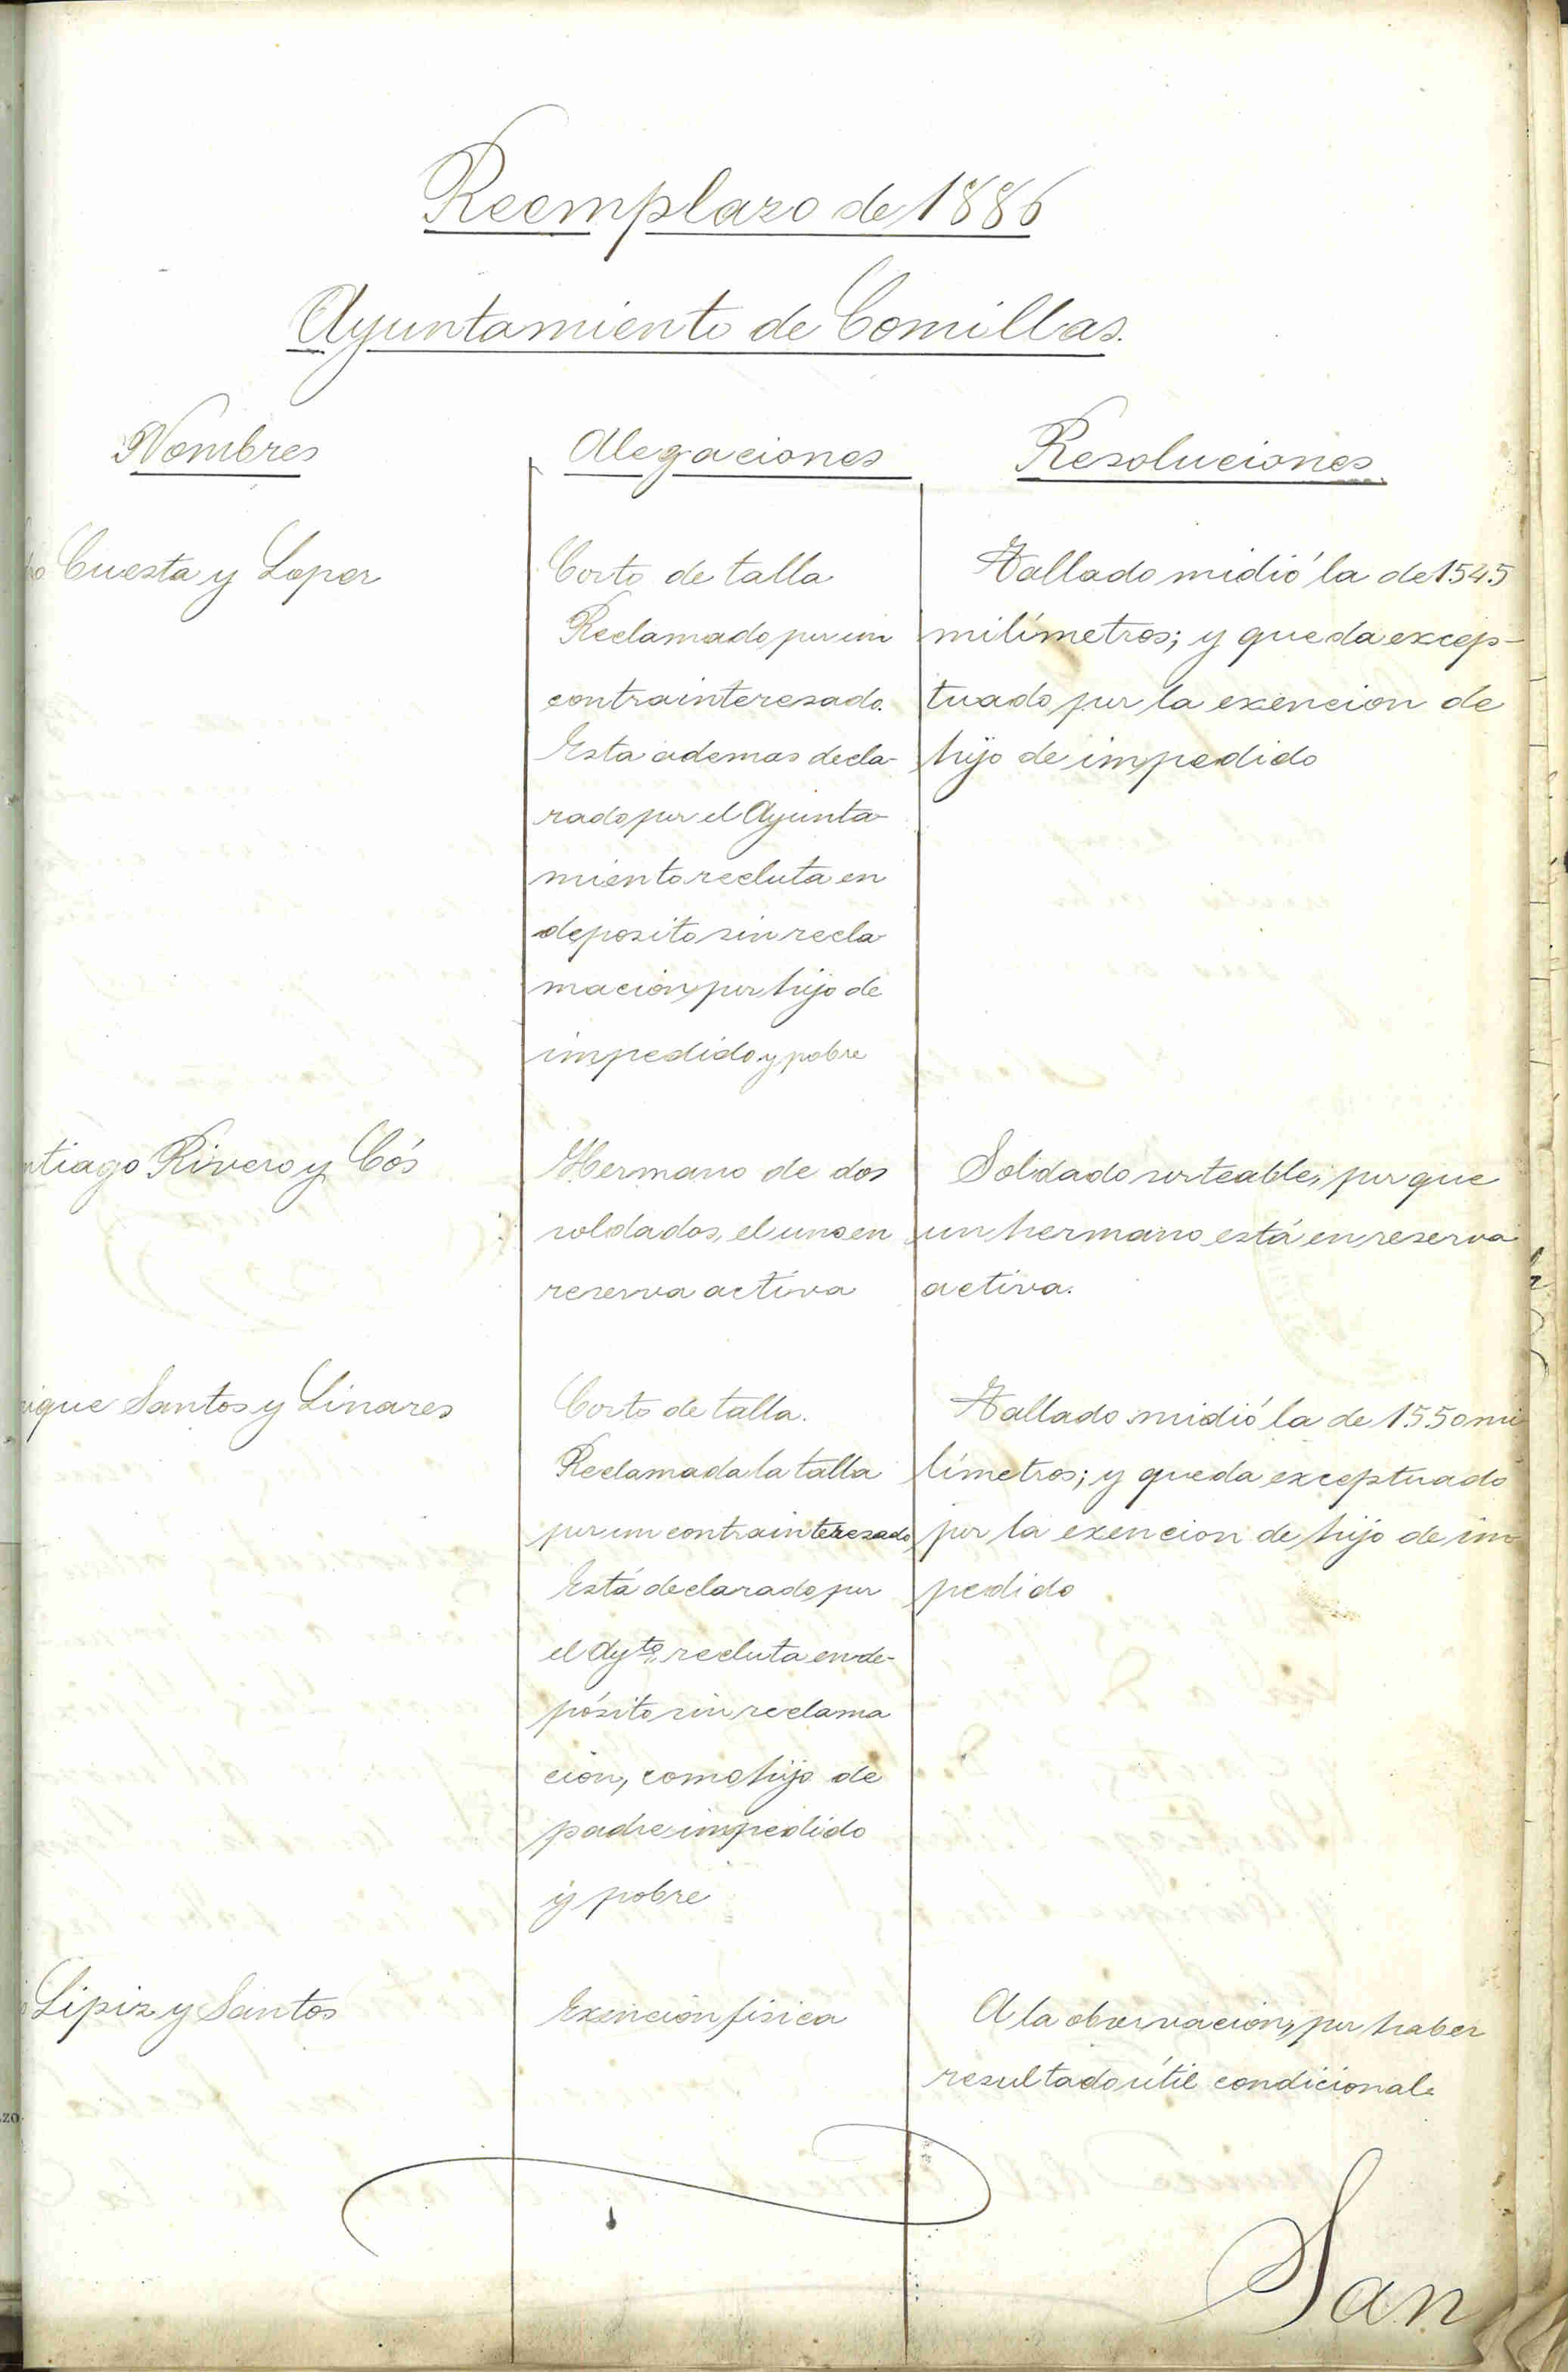 Reemplazo de 1886
Ayuntamiento de Comillas.
Nombres
Alegaciones
Resoluciones
Cuesta y Lopez
Corto de talla
Reclamado por un
contrainteresado.
Esta ademas decla-
rado por el Ayunta-
miento recluta en
deposito sin recla
macion, por hijo de
impedido y pobre
Tallado midió la de 1545
milímetros; y queda excep-
tuado por la exencion de
hijo de impedido
ntiago Rivero y Cós
Hermano de dos
soldados, el uno en
reserva activa
Soldado sorteable, por que
un hermano está en reserva
activa.
ique Santos y Linares
Corto de talla.
Reclamada la talla
por un contrainteresado
Está declarado por
el Ayto. recluta en de-
pósito sin reclama
cion, como hijo de
padre impedido
y pobre
Tallado midió la de 1550 mi
límetros; y queda exceptuado
por la exencion de hijo de im
pedido
Lipiz y Santos
Exencion física
A la observacion, por haber
resultado útil condicional.
San